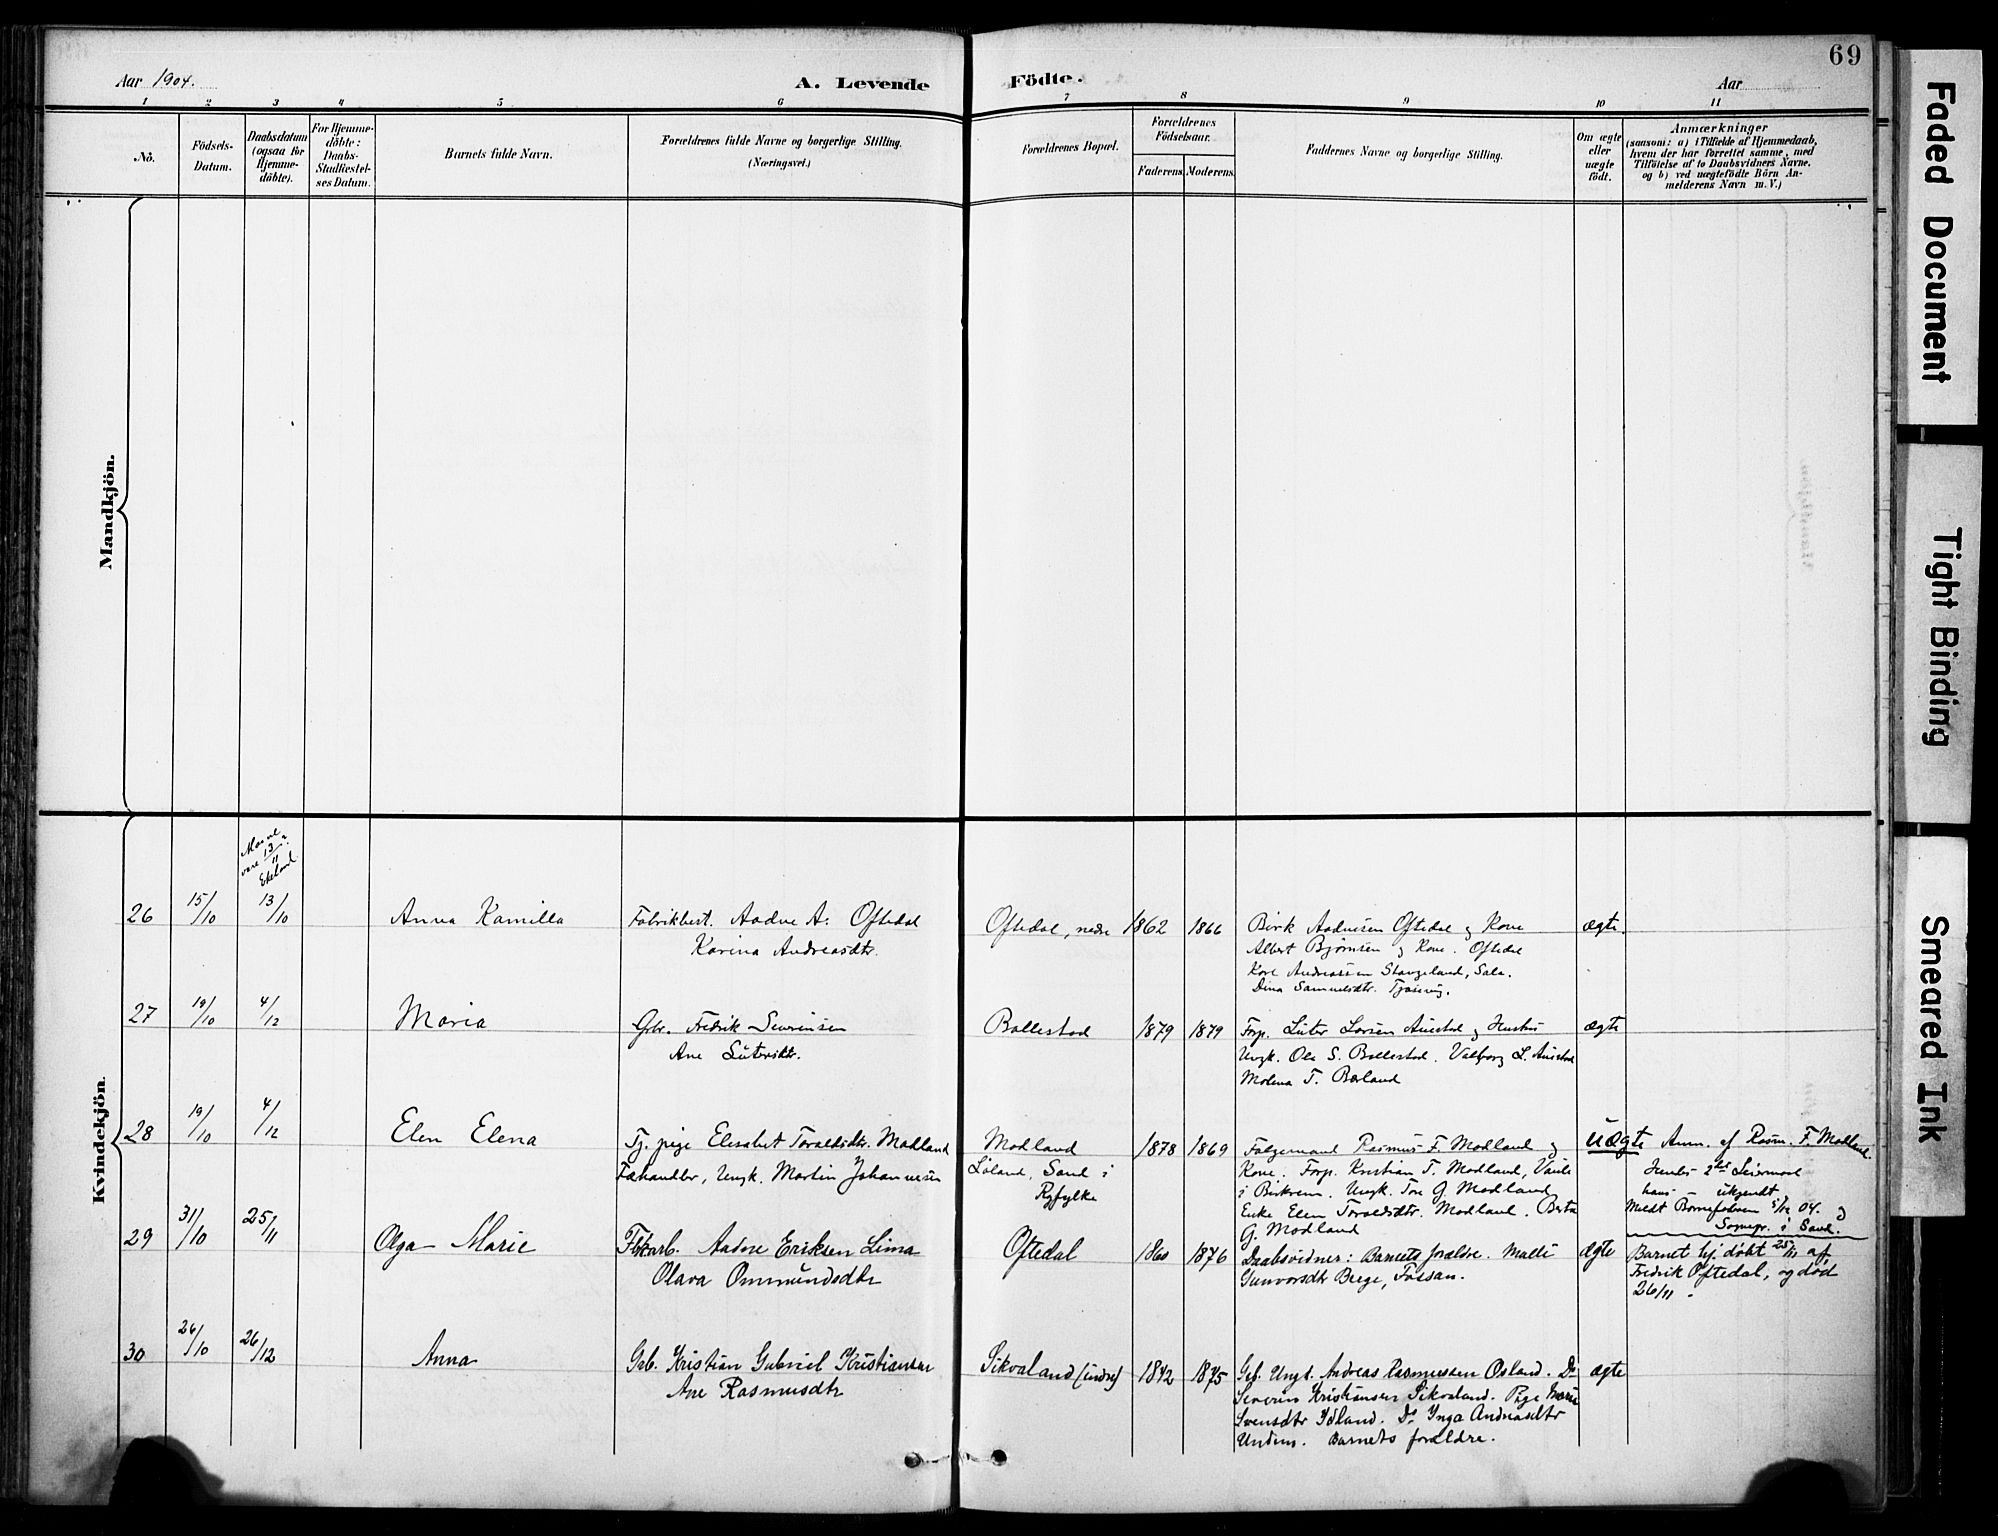 69
Aar 1904.
A. Levende
Födte.
Aar
1 2 3 4 5 6 7 8 9 10 11
No.
Födsels-
Datum.
Daabsdatum
(ogsaa for
Hjemme-
döbte).
For Hjemme-
döbte:
Daabs-
Stadfæstel-
ses Datum.
Barnets fulde Navn.
Forældrenes fulde Navne og borgerlige Stilling.
(Næringsvei.)
Forældrenes Bopæl.
Forældrenes
Födselsaar.
Faderens. Moderens.
Faddernes Navne og borgerlige Stilling.
Om ægte
eller
uægte
födt.
Anmærkninger
(saasom: a) i Tilfælde af Hjemmedaab,
hvem der har forrettet samme, med
Tilföielse af to Daabsvidners Navne.
og b) ved uægtefödte Börn An-
melderens Navn m.V.)
Mandkjön.
Kvindekjön.
26
15/10
13/10
Anna Kamilla
Fabrikbest. Aadne A. Oftedal
Karina Andreasdtr.
Oftedal, nedre
1862
1866
Birk Aadnesen Oftedal og Kone
Albert Bjørnsen og Kone. Oftedal
Kore Andreassen Stangeland, Sola.
Dina Samuelsdtr.
ægte.
27
19/10
4/12
Maria
Gbr. Fredrik Severinsen
Ane
Bollestad
1879
1879
Forp. Larsen
Ungk. Ole S. Bollestad. Valborg L.
Malena T. Berland
ægte
28
19/10
4/12
Elen Elena
Tj. pige Elisabet Toraldsdtr. Modland
Fæhandler, Ungk. Martin Johannesen
Modland
Løland, Sand i
Ryfylke
1878
1869
Følgemand Rasmus F. Modland og
Kone. Forp. Kristian T. Modland,
i Birkrem. Ungk. Tore G. Modland
Enke Elen Toraldsdtr. Modland. Berta
G. Modland
uægte
Anm. af Rasm. F. Modland.
Hendes 2det Leiermaal
hans ukjendt
Meldt 5/12 04. og
Sognepr. i Sand.
29
31/10
25/11
Olga Marie
Fbkarb. Aadne Eriksen Lima
Olava Ommundsdtr
Oftedal
1860
1876
Daabsvidner: Barnets forældre. Malli
Gunvorsdtr Berge, Fossan.
ægte
Barnet hj. döbt 25/11 af
Fredrik Oftedal, og död
26/11.
30
26/10
26/12
Anna
Gb. Kristian Gabriel Kristiansen
Ane Rasmusdtr
Sikvaland (indre)
1842
1875
Gb. Ungk. Andreas Rasmussen Osland. Do
Severin Kristiansen Sikvaland. Pige Marie
Svensdtr Ydland. Do Inga Andreasdtr
Undem. Barnets forældre.
ægte
Faded Document
Tight Binding
Smeared Ink